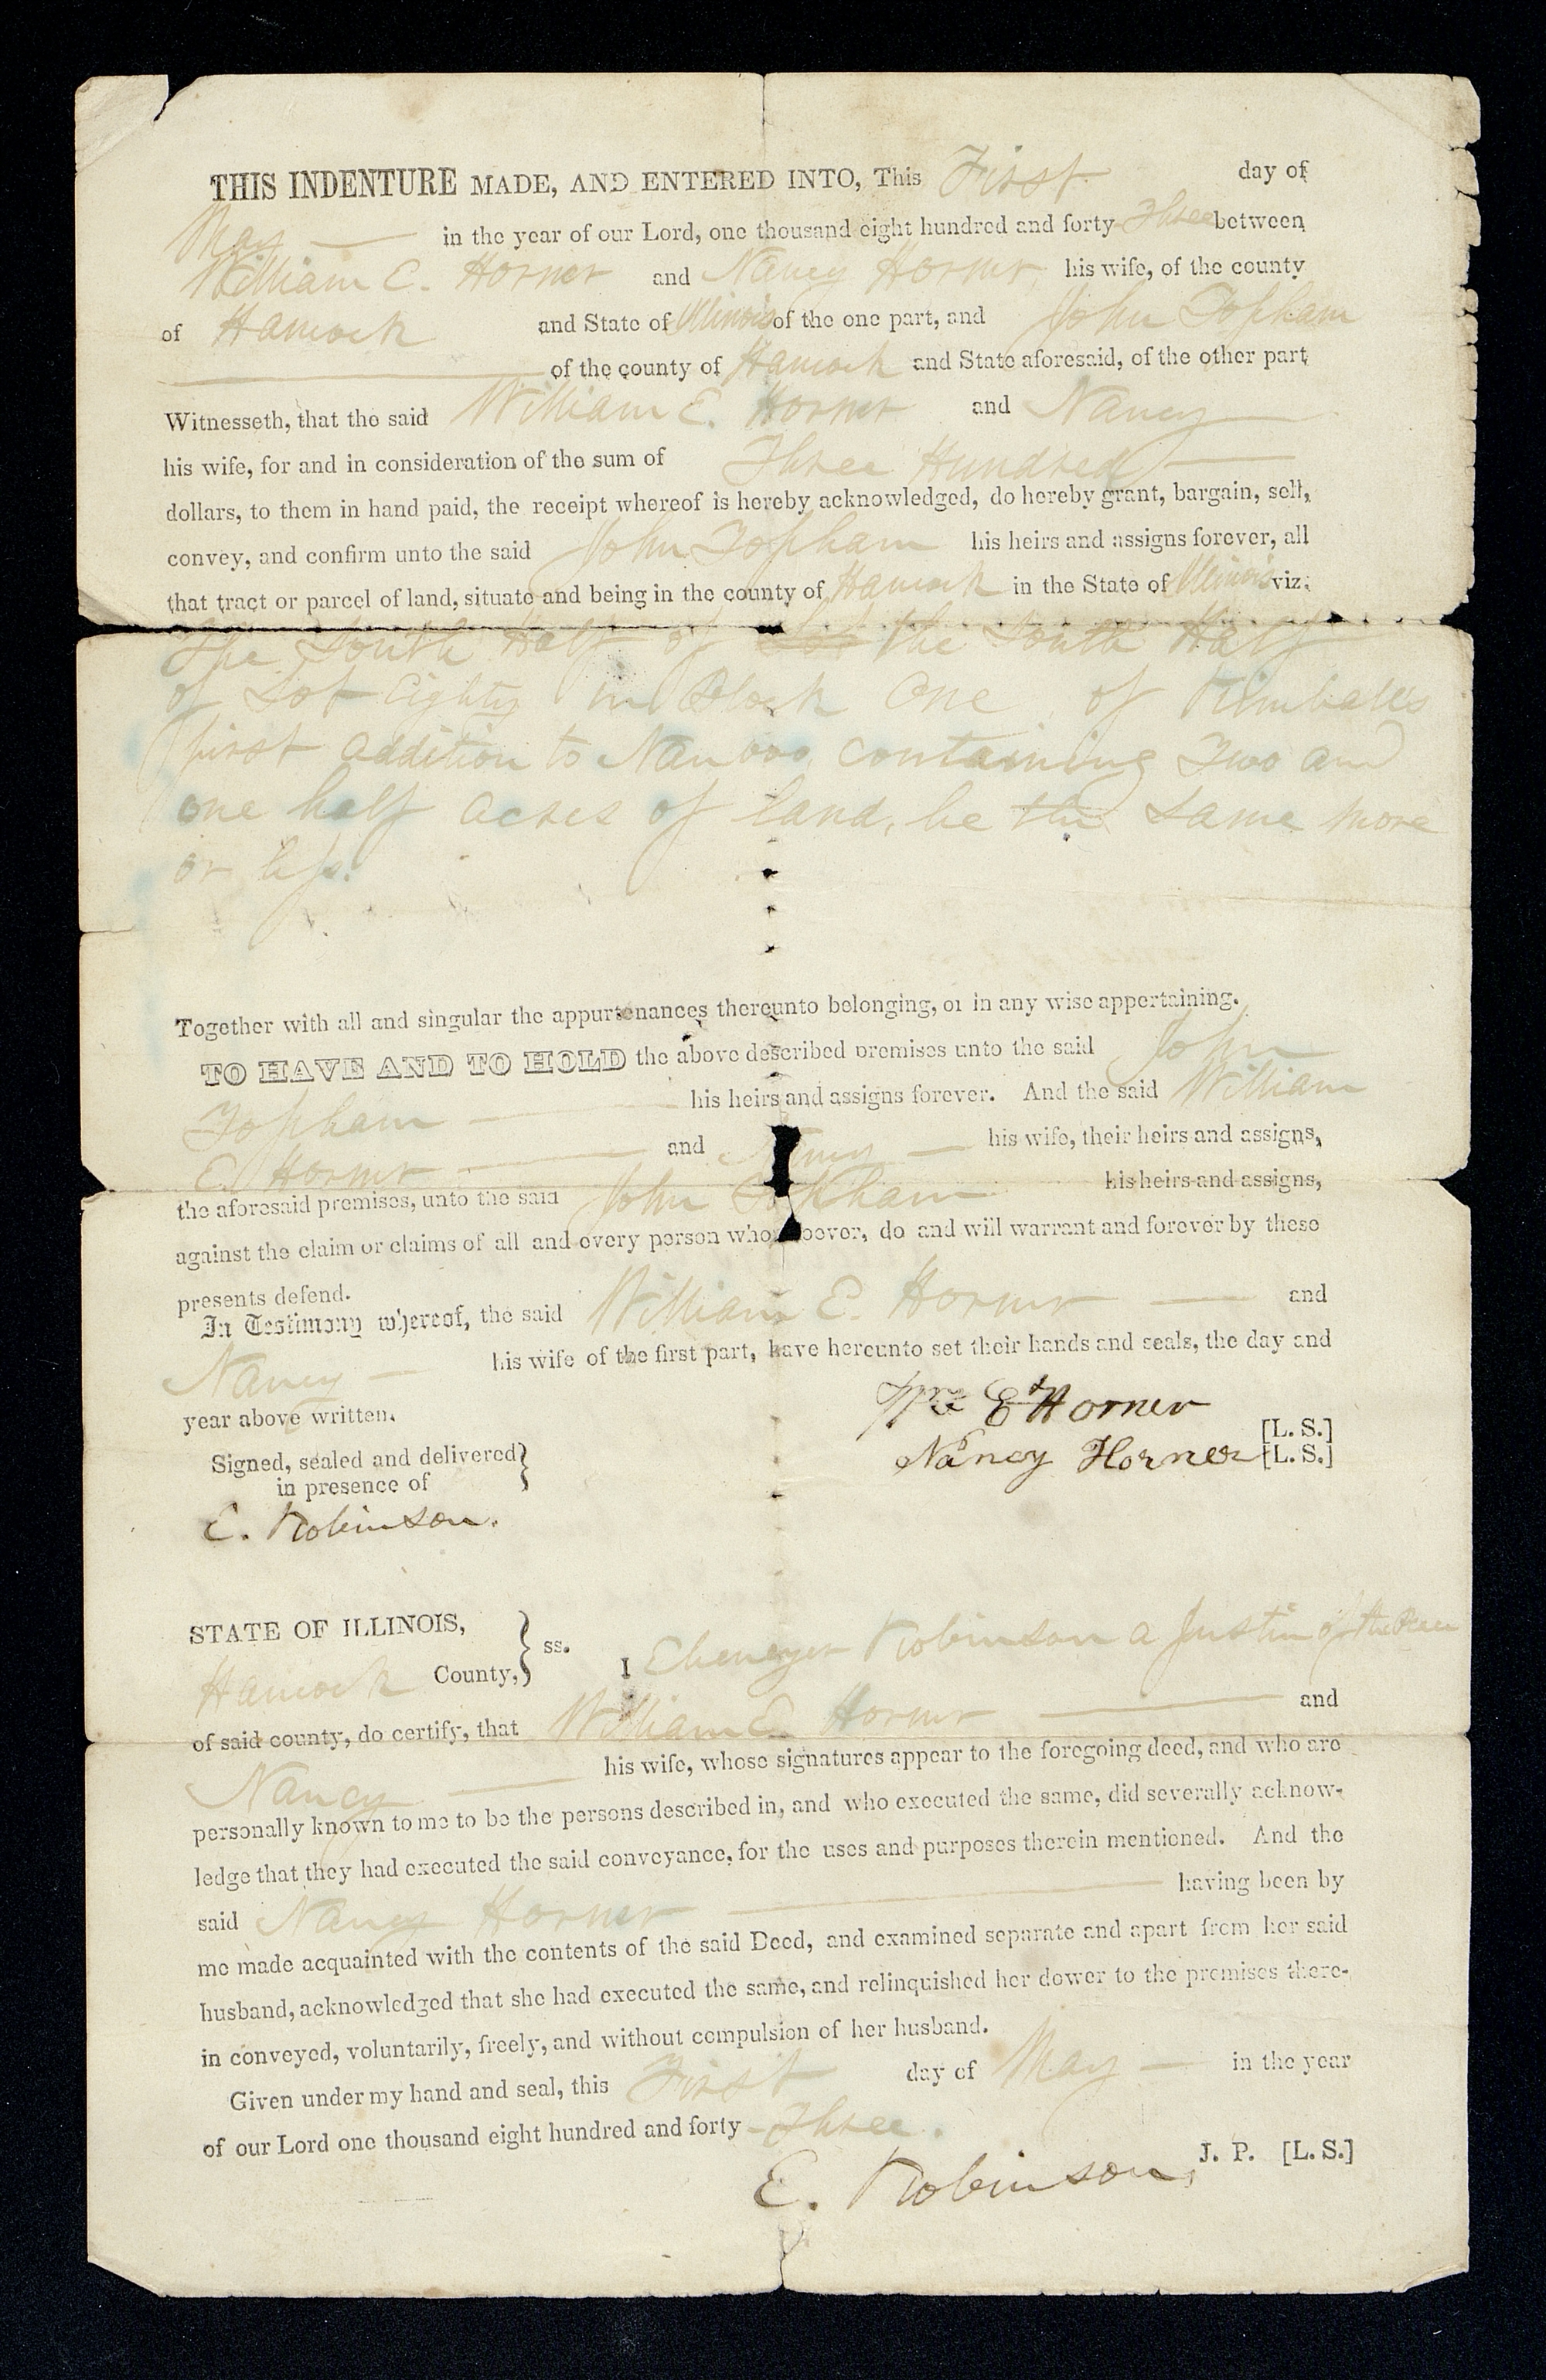 THIS INDENTURE MADE, AND ENTERED INTO, This First day of
May in the year of our Lord, one thousand eight hundred and forty Three between
William E. Horner and Nancy Horner his wife, of the county
of Hancock and State of Illinois of the one part, and John Topham
of the county of Hancock and State aforesaid, of the other part
Witnesseth, that the said William E. Horner and Nancy
his wife, for and in consideration of the sum of Three Hundred
dollars, to them in hand paid, the receipt whereof is hereby acknowledged, do hereby grant, bargain, sell,
convey, and confirm unto the said John Topham his heirs and assigns forever, all
that tract or parcel of land, situate and being in the county of Hancock in the State of Illinois viz:
The South Half of the South Half
of Lot Eighty in Block One of Kimball's
first addition to Nauvoo, containing Two and
one half acres of land, be the same more
or less.
Together with all and singular the appurtenances thereunto belonging, or in any wise appertaining.
TO HAVE AND TO HOLD the above described premises unto the said John
Topham his heirs and assigns forever. And the said William
E. Horner and Nancy his wife, their heirs and assigns,
the aforesaid premises, unto the said John Topham his heirs and assigns,
against the claim or claims of all and every person whomsoever, do and will warrant and forever by these
presents defend.
In Testimony whereof, the said William E. Horner and
Nancy his wife of the first part, have hereunto set their hands and seals, the day and
year above written.
Wm E Horner [L. S.]
Signed, sealed and delivered }
in presence of
Nancy Horner [L. S.]
E. Robinson.
STATE OF ILLINOIS, } ss.
Hancock County, I Ebenezer Robinson a Justice of the Peace
of said county, do certify, that William E. Horner and
Nancy his wife, whose signatures appear to the foregoing deed, and who are
personally known to me to be the persons described in, and who executed the same, did severally acknow-
ledge that they had executed the said conveyance, for the uses and purposes therein mentioned. And the
said Nancy Horner having been by
me made acquainted with the contents of the said Deed, and examined separate and apart from her said
husband, acknowledged that she had executed the same, and relinquished her dower to the premises there-
in conveyed, voluntarily, freely, and without compulsion of her husband.
Given under my hand and seal, this First day of May in the year
of our Lord one thousand eight hundred and forty-Three.
E. Robinson, J. P. [L. S.]